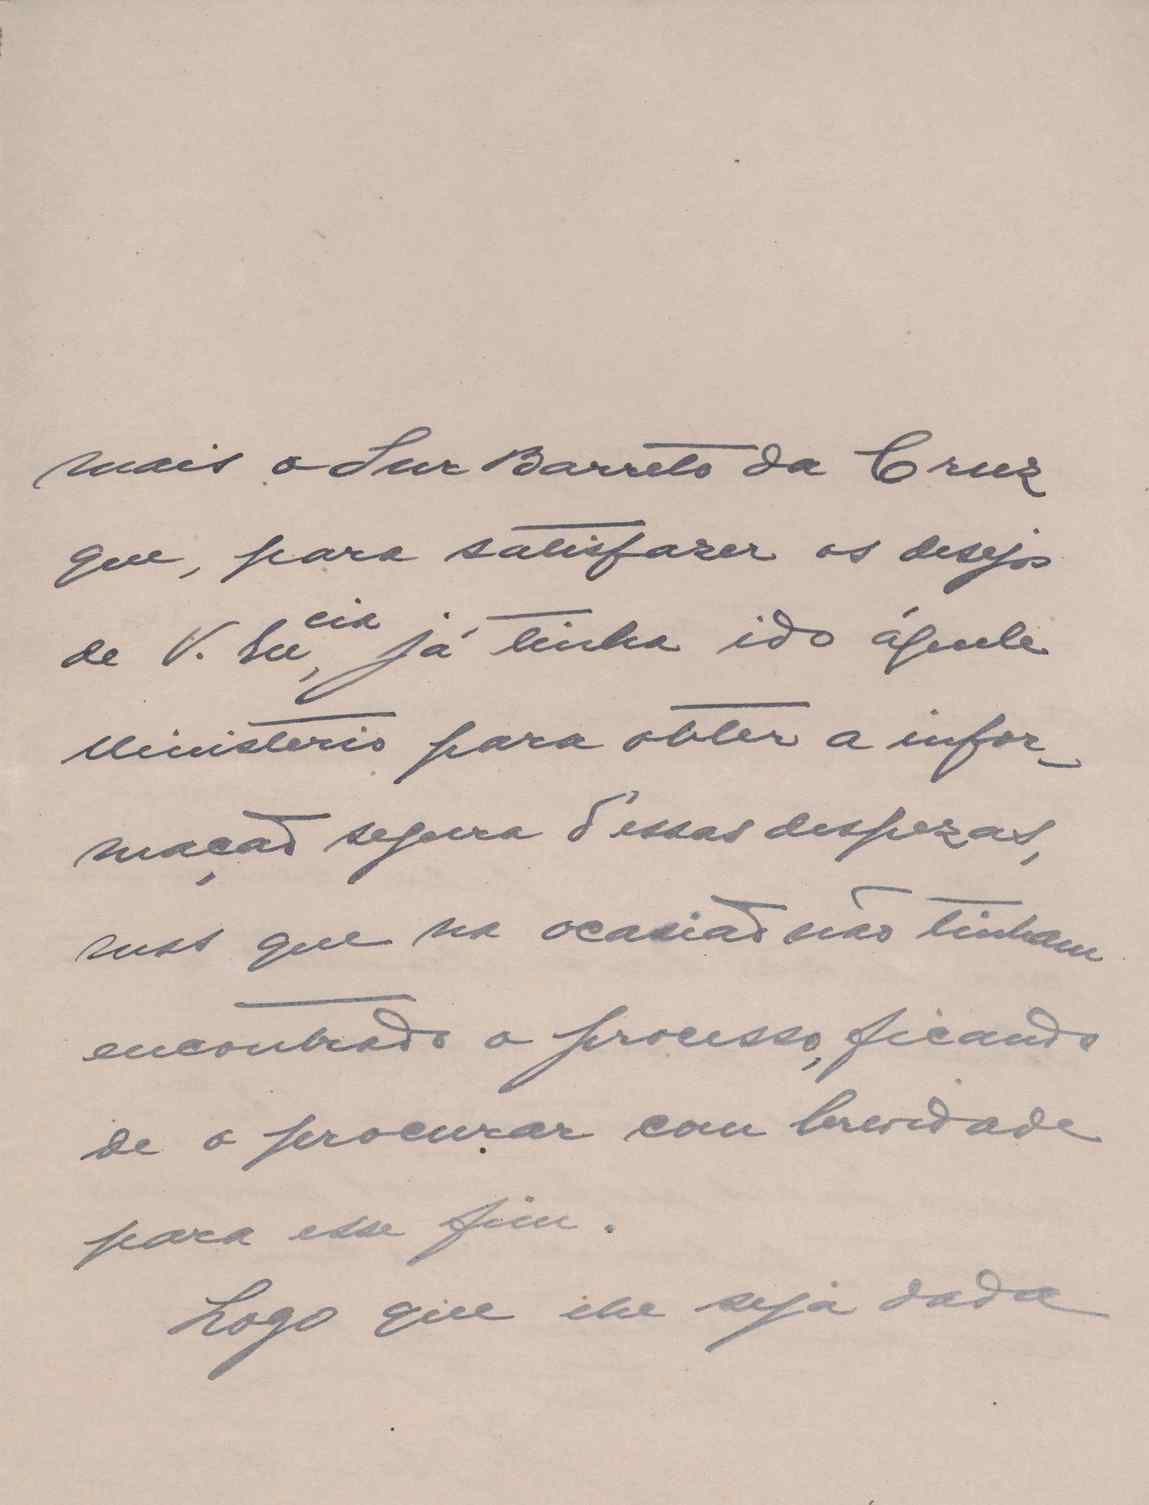 mais o Snr Barreto da Cruz
que, para satisfazer os desejos
de V. Excia, já tinha ido áquele
Ministerio para obter a infor-
mação segura d'essas despezas,
mas que na ocasião não tinham
encontrado o processo, ficando
de o procurar com brevidade
para esse fim.
Logo que lhe seja dada